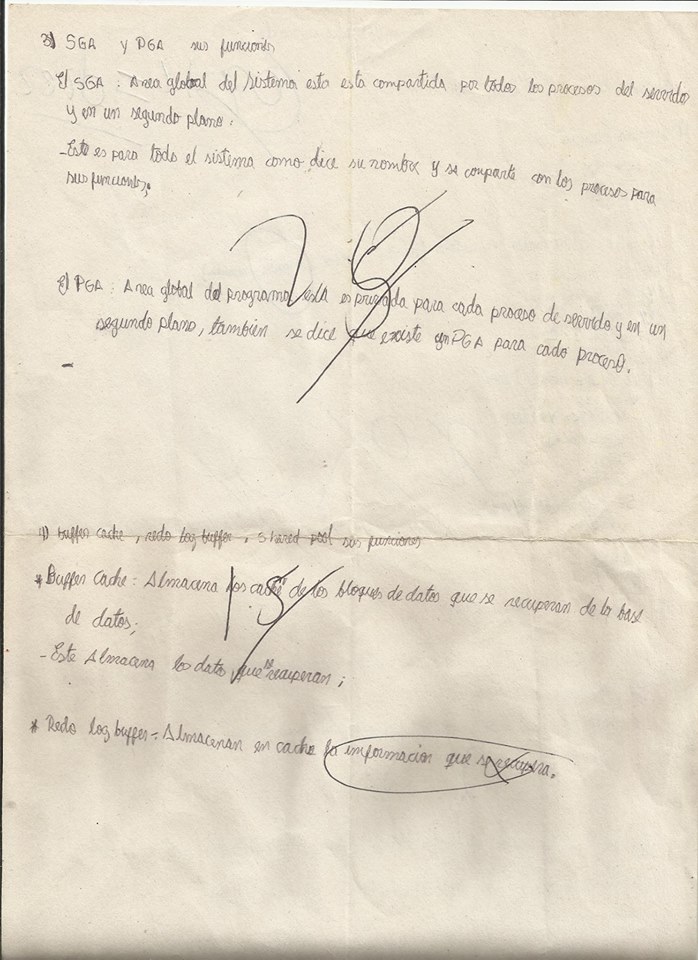 3) SGA y PGA sus funciones
El SGA: Area global del sistema esto esta compartida por todos los procesos del servido
y en un segundo plano:
-Este es para todo el sistema como dice su nombre y se comparte con los procesos para
sus funciones;
El PGA: Area global del programa esta es privada para cada proceso de servido y en un
segundo plano, tambien se dice que existe un PGA para cado proceso.
-
1) buffer cache, redo log buffer, shared pool sus funciones
*Buffer cache: Almacena los cache de los bloques de datos que se recuperan de la base
de datos;
-Este Almacena los dato que recuperan;
* Redo log buffer=Almacenan en cache la imformacion que se recupera.